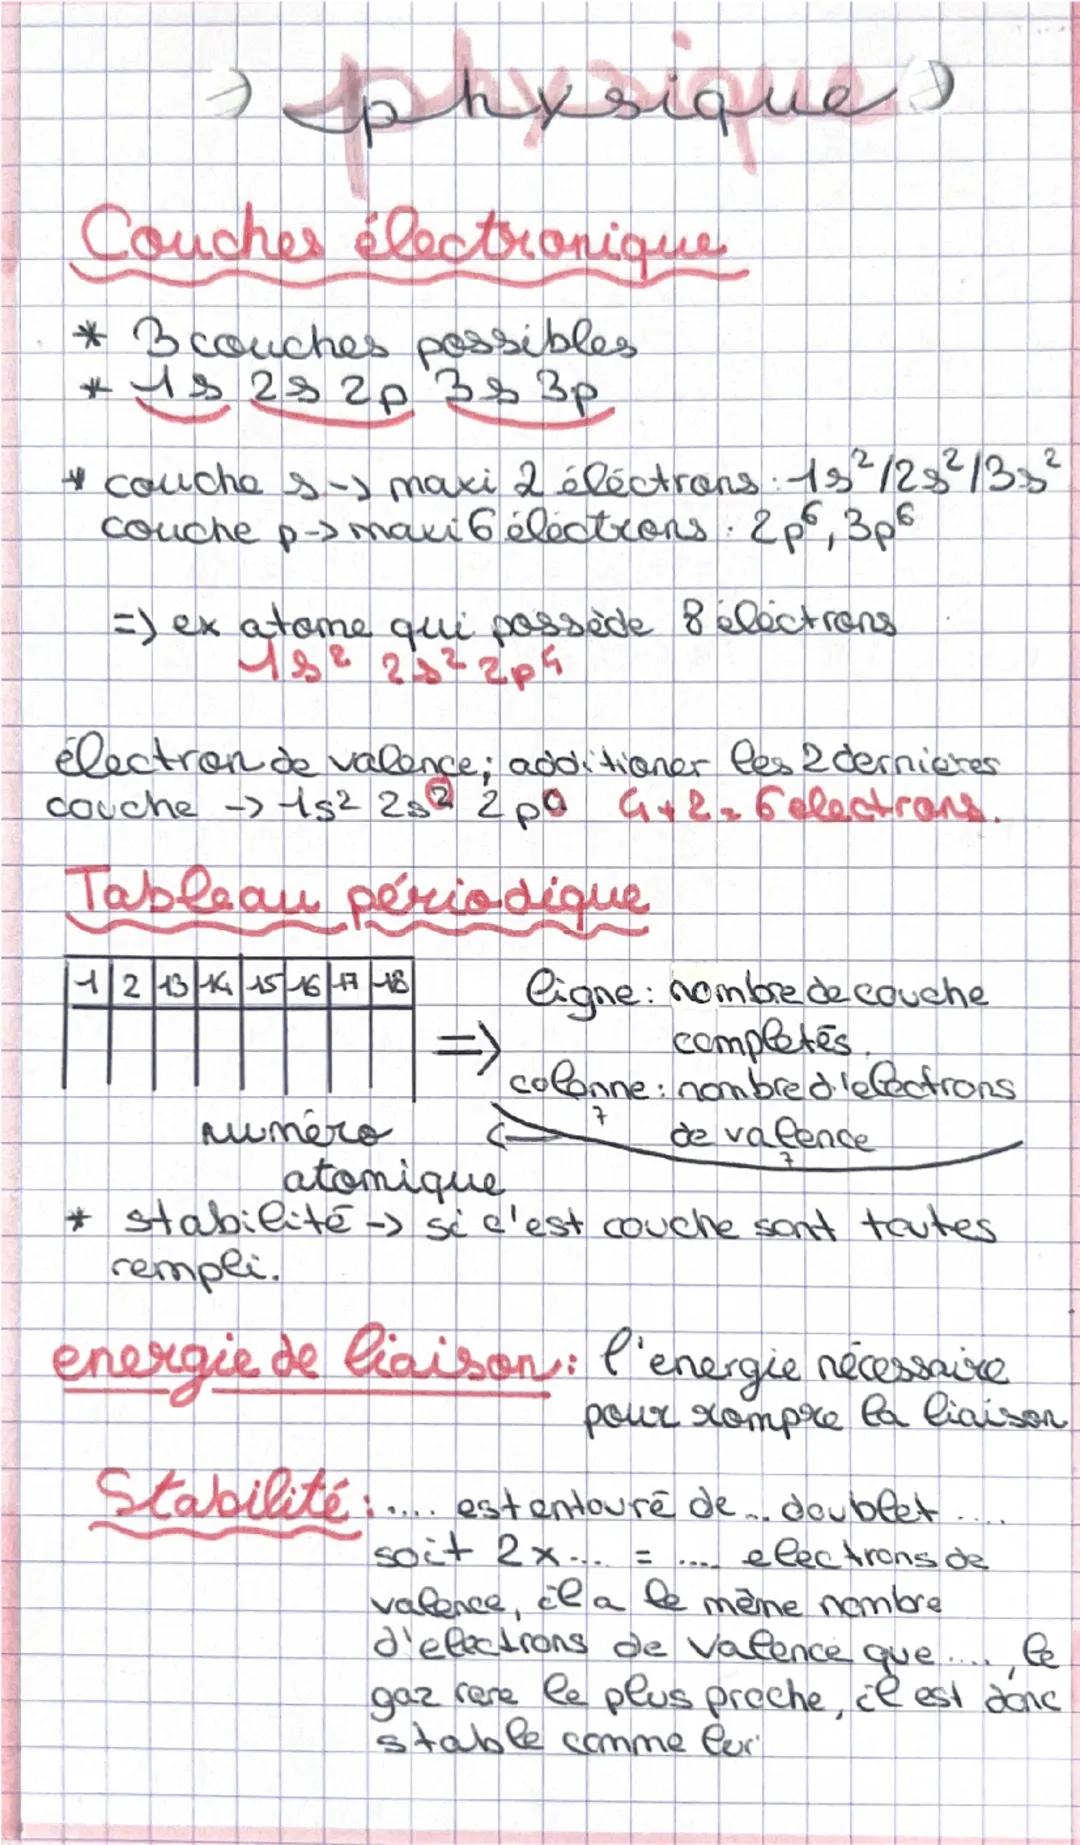 physique
Couches électronique
* 3 couches possibles
* 1s 2s 2p 3s 3p
* couche s -> maxi 2 éléctrons : 1s²/2s²/3s²
couche p -> maxi 6 éléctrons : 2p⁶, 3p⁶
=> ex atome qui possède 8 éléctrons
1s² 2s² 2p⁴
électron de valence ; additioner les 2 dernières
couche -> 1s² 2s² 2p⁴ 4+2=6 electrons.
Tableau périodique
1 2 13 14 15 16 17 18
=> ligne : nombre de couche
completés.
colonne : nombre d'electrons
de valence
numéro
atomique
* stabilité -> si c'est couche sont toutes
rempli.
energie de liaison : l'energie nécessaire
pour rompre la liaison
Stabilité : .... est entouré de ... doublet ....
soit 2 x .... = .... electrons de
valence, il a le même nombre
d'electrons de valence que ...., le
gaz rare le plus proche, il est donc
stable comme lui